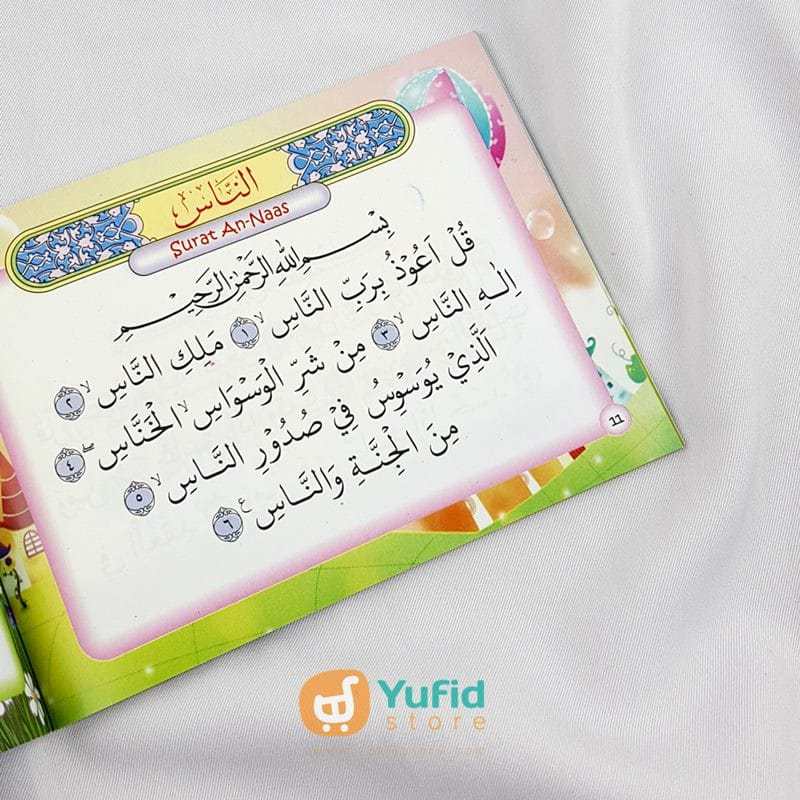 النَّاس
Surat An-Naas
بِسْمِ اللهِ الرَّحْمٰنِ الرَّحِيْمِ
قُلْ اَعُوْذُ بِرَبِّ النَّاسِۙ ١ مَلِكِ النَّاسِۙ ٢
اِلٰهِ النَّاسِۙ ٣ مِنْ شَرِّ الْوَسْوَاسِ ەۙ الْخَنَّاسِۖ ٤
الَّذِيْ يُوَسْوِسُ فِيْ صُدُوْرِ النَّاسِۙ ٥
مِنَ الْجِنَّةِ وَالنَّاسِ ع ٦
11
Yufid
store